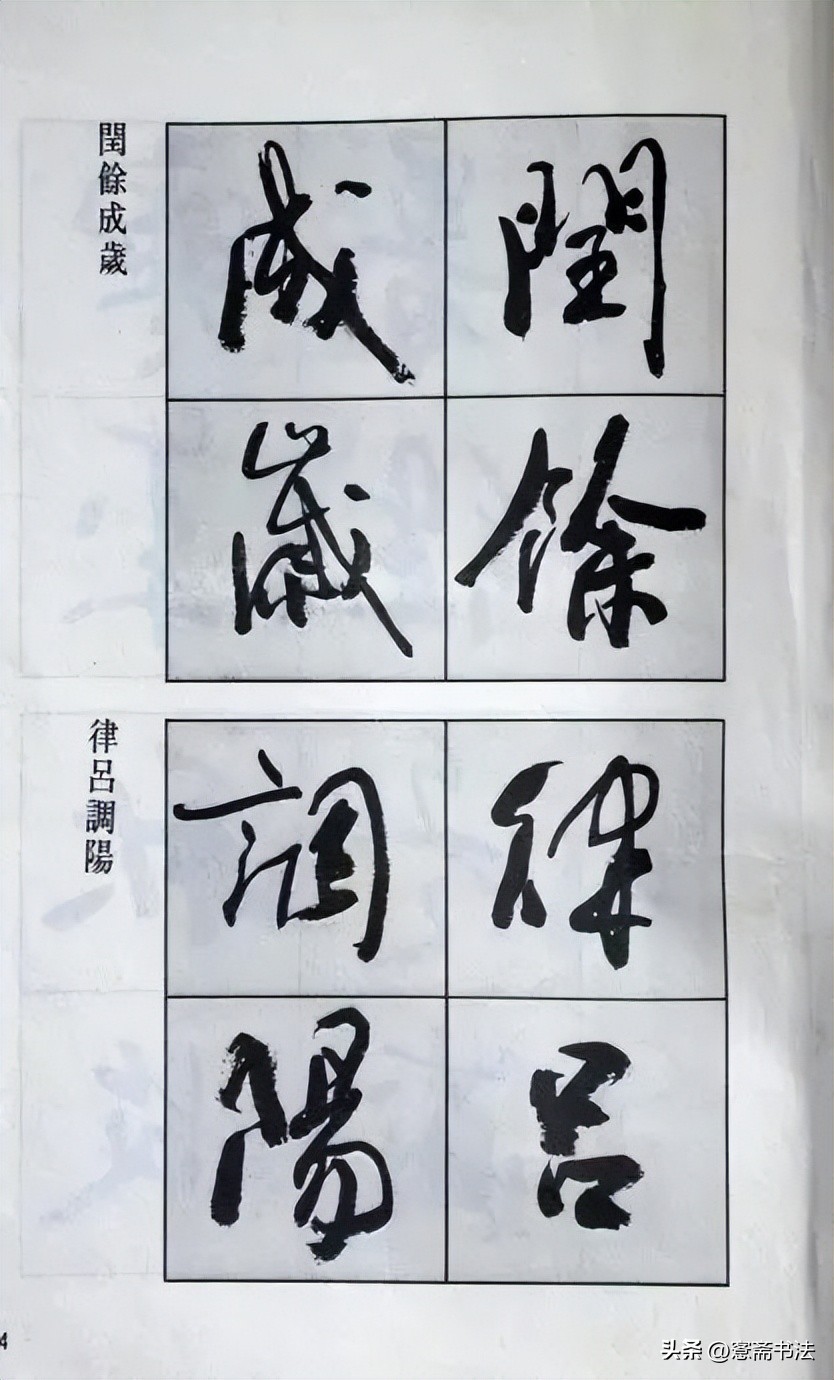 閏餘
成歲
閏餘成歲
律呂
調陽
律呂調陽
4
头条 @寔斋书法